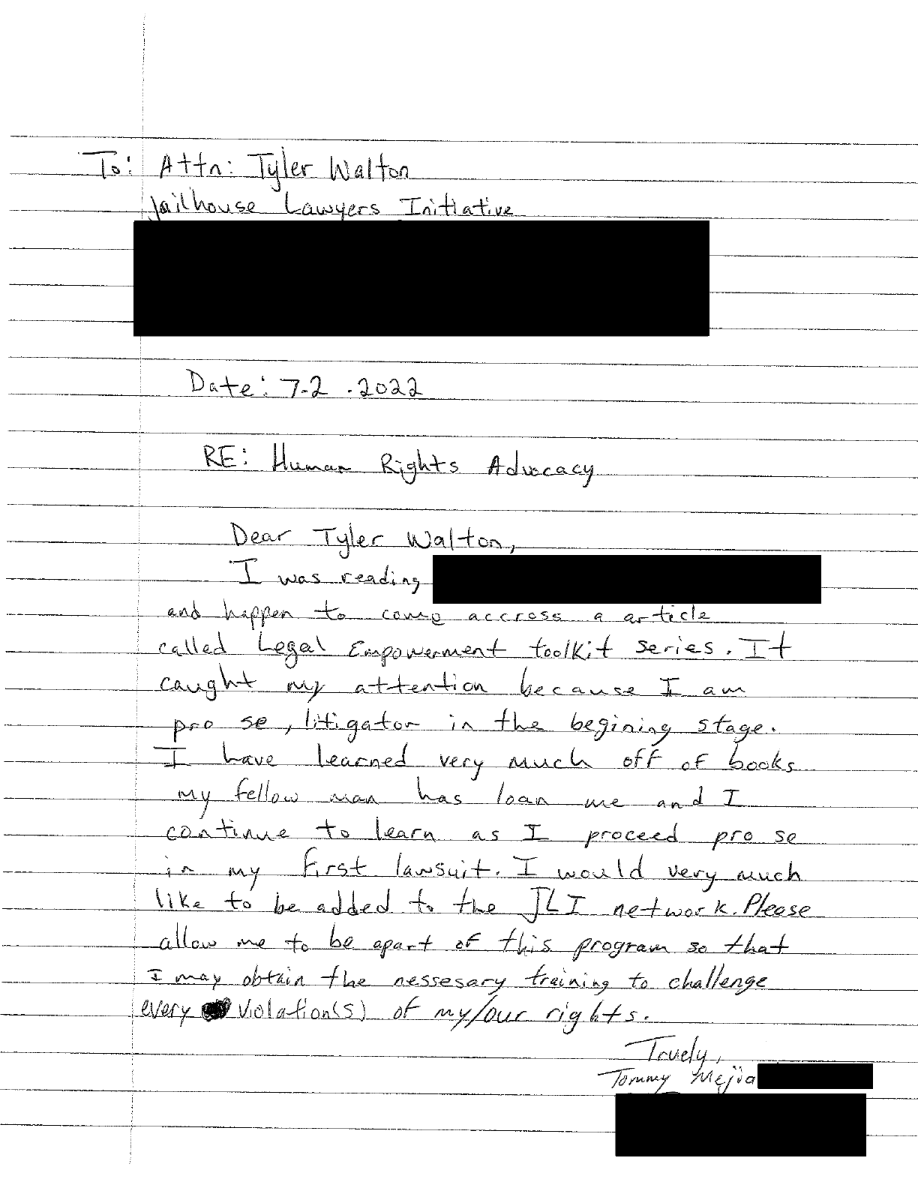 To: Attn: Tyler Walton
Jailhouse Lawyers Initiative
Date: 7-2-2022
RE: Human Rights Advocacy
Dear Tyler Walton,
I was reading
and happen to come accross a article
called Legal Empowerment toolkit series. It
caught my attention because I am
pro se, litigator in the begining stage.
I have learned very much off of books
my fellow man has loan me and I
continue to learn as I proceed pro se
in my first lawsuit. I would very much
like to be added to the JLI network. Please
allow me to be apart of this program so that
I may obtain the nessesary training to challenge
every violation(s) of my/our rights.
Truely,
Tommy Mejia